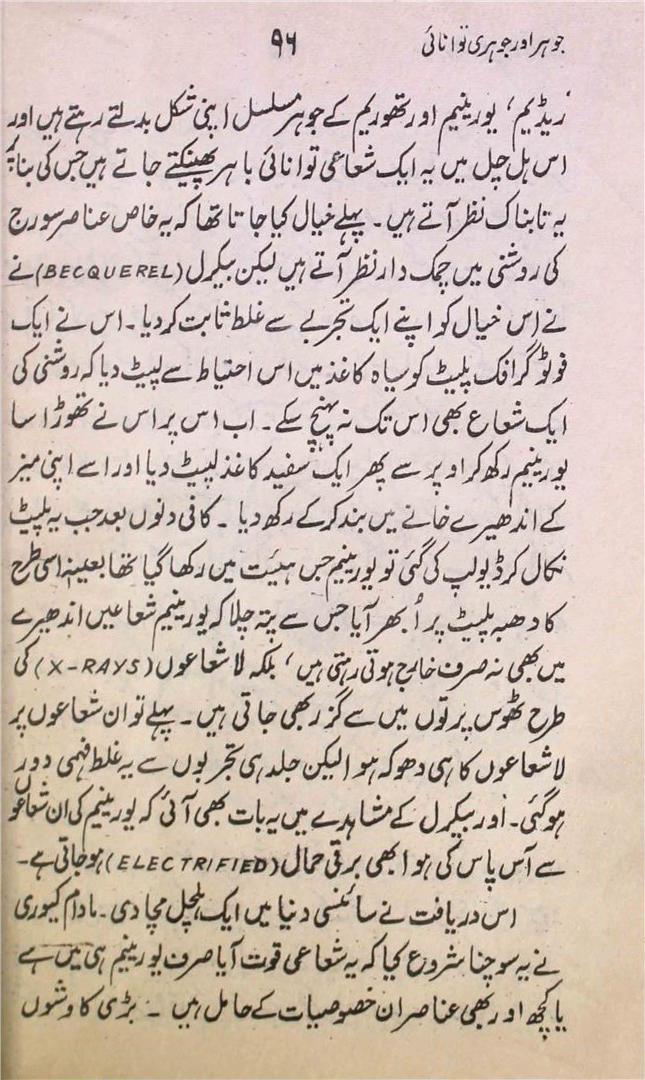 جوہر اور جوہری توانائی
۹۶
ریڈیم، یورینیم اور تھوریم کے جوہر مسلسل اپنی شکل بدلتے رہتے ہیں اور
اس ہل چل میں یہ ایک شعاعی توانائی باہر پھینکتے جاتے ہیں جس کی بنا پر
یہ تابناک نظر آتے ہیں۔ پہلے خیال کیا جاتا تھا کہ یہ خاص عناصر سورج
کی روشنی میں چمک دار نظر آتے ہیں لیکن بیکرل (BECQUEREL) نے
نے اس خیال کو اپنے ایک تجربے سے غلط ثابت کر دیا۔ اس نے ایک
فوٹو گرافک پلیٹ کو سیاہ کاغذ میں اس احتیاط سے لپیٹ دیا کہ روشنی کی
ایک شعاع بھی اس تک نہ پہنچ سکے۔ اب اس پر اس نے تھوڑا سا
یورینیم رکھ کر اوپر سے پھر ایک سفید کاغذ لپیٹ دیا اور اسے اپنی میز
کے اندھیرے خانے میں بند کر کے رکھ دیا ۔ کافی دنوں بعد جب یہ پلیٹ
نکال کر ڈیولپ کی گئی تو یورینیم جس ہیئت میں رکھا گیا تھا بعینہٖ اسی طرح
کا دھبہ پلیٹ پر اُبھر آیا جس سے پتہ چلا کہ یورینیم شعاعیں اندھیرے
میں بھی نہ صرف خارج ہوتی رہتی ہیں، بلکہ لاشعاعوں (X-RAYS) کی
طرح ٹھوس پرتوں میں سے گزر بھی جاتی ہیں۔ پہلے تو ان شعاعوں پر
لاشعاعوں کا ہی دھوکہ ہوا لیکن جلد ہی تجربوں سے یہ غلط فہمی دور
ہو گئی۔ اور بیکرل کے مشاہدے میں یہ بات بھی آئی کہ یورینیم کی ان شعاعوں
سے آس پاس کی ہوا بھی برقی حمال (ELECTRIFIED) ہو جاتی ہے۔
اس دریافت نے سائنسی دنیا میں ایک ہلچل مچا دی۔ مادام کیوری
نے یہ سوچنا شروع کیا کہ یہ شعاعی قوت آیا صرف یورینیم ہی میں ہے
یا کچھ اور بھی عناصر ان خصوصیات کے حامل ہیں ۔ بڑی کاوشوں